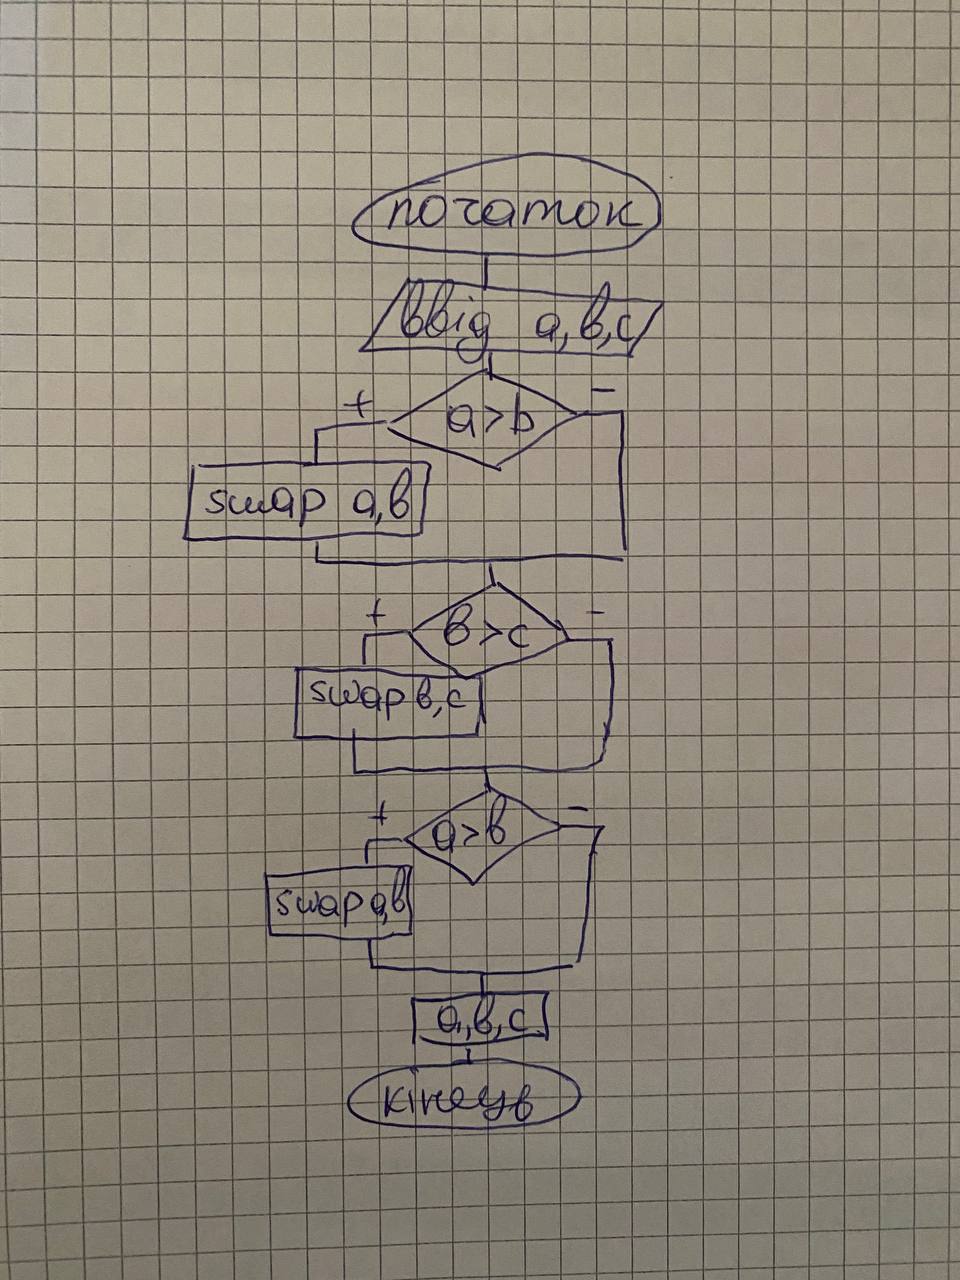 початок
ввід a,b,c
a>b
+
-
swap a,b
b>c
+
-
swap b,c
a>b
+
-
swap a,b
a,b,c
кінець